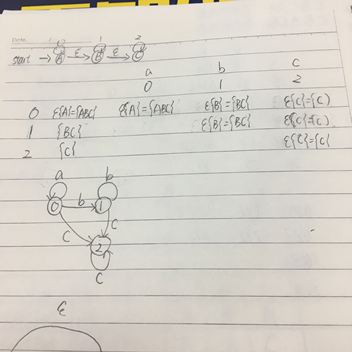 start → A ε→ B ε→ C
a b c
0 1 2
0 ε{A}={ABC} ε{A}={ABC} ε{B}={BC} ε{C}={C}
1 {BC} ε{B}={BC} ε{C}={C}
2 {C} ε{C}={C}
a b
0 b 1
C C
2
C
ε